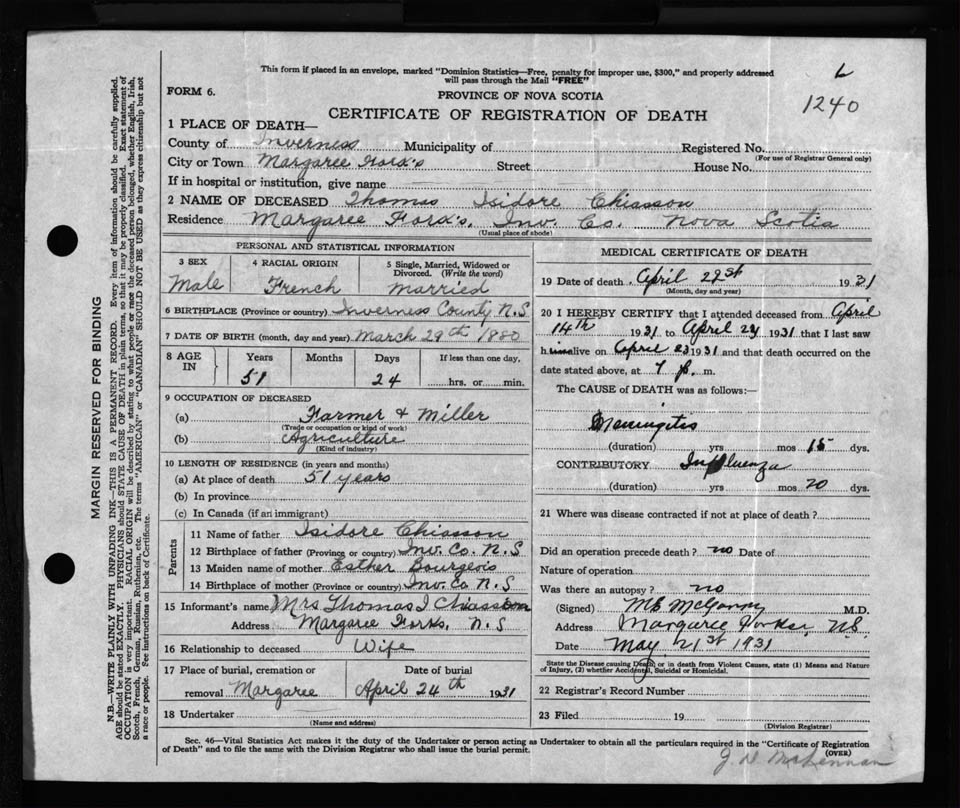 This form if placed in an envelope, marked "Dominion Statistics—Free, penalty for improper use, $300," and properly addressed
will pass through the Mail "FREE"
L
1240
FORM 6.
PROVINCE OF NOVA SCOTIA
CERTIFICATE OF REGISTRATION OF DEATH
1 PLACE OF DEATH—
County of Inverness Municipality of Registered No.
(For use of Registrar General only)
City or Town Margaree Fork's Street House No.
If in hospital or institution, give name
2 NAME OF DECEASED Thomas Isidore Chiasson
Residence Margaree Fork's, Inv. Co. Nova Scotia
(Usual place of abode)
PERSONAL AND STATISTICAL INFORMATION
3 SEX 4 RACIAL ORIGIN 5 Single, Married, Widowed or
Divorced. (Write the word)
Male French Married
6 BIRTHPLACE (Province or country) Inverness County N.S
7 DATE OF BIRTH (month, day and year) March 29th 1880
8 AGE IN Years Months Days If less than one day,
51 24 hrs. or min.
9 OCCUPATION OF DECEASED
(a) Farmer & Miller
(Trade or occupation or kind of work)
(b) Agriculture
(Kind of industry)
10 LENGTH OF RESIDENCE (in years and months)
(a) At place of death 51 years
(b) In province
(c) In Canada (if an immigrant)
Parents
11 Name of father Isidore Chiasson
12 Birthplace of father (Province or country) Inv. Co. N.S
13 Maiden name of mother Esther Bourgeois
14 Birthplace of mother (Province or country) Inv. Co N.S
15 Informant's name Mrs Thomas I Chiasson
Address Margaree Forks, N.S
16 Relationship to deceased Wife
17 Place of burial, cremation or Date of burial
removal Margaree April 24th 1931
18 Undertaker
(Name and address)
MEDICAL CERTIFICATE OF DEATH
19 Date of death April 1931
(Month, day and year)
20 I HEREBY CERTIFY that I attended deceased from April
14th 1931 to April 1931 that I last saw
h alive on April 23 1931 and that death occurred on the
date stated above, at 7 p. m.
The CAUSE OF DEATH was as follows:
Meningitis
(duration) yrs mos 15 dys.
CONTRIBUTORY Influenza
(duration) yrs mos 20 dys.
21 Where was disease contracted if not at place of death?
Did an operation precede death? no Date of
Nature of operation
Was there an autopsy? no
(Signed) M.D.
Address Margaree Forks, N.S
Date May 21st 1931
State the Disease causing Death; or in death from Violent Causes, state (1) Means and Nature
of Injury, (2) whether Accidental, Suicidal or Homicidal.
22 Registrar's Record Number
23 Filed 19
(Division Registrar)
Sec. 46—Vital Statistics Act makes it the duty of the Undertaker or person acting as Undertaker to obtain all the particulars required in the "Certificate of Registration
of Death" and to file the same with the Division Registrar who shall issue the burial permit.
(OVER)
J. D. McLennan
MARGIN RESERVED FOR BINDING
N.B.—WRITE PLAINLY WITH UNFADING INK—THIS IS A PERMANENT RECORD. Every item of information should be carefully supplied.
AGE should be stated EXACTLY. PHYSICIANS should STATE CAUSE OF DEATH in plain terms, so that it may be properly classified. Exact statement of
OCCUPATION is very important. RACIAL ORIGIN will be described by stating to what people or race the deceased person belonged, whether English, Irish,
Scotch, French, German, Russian, Ruthenian, etc. The terms "AMERICAN" or "CANADIAN" SHOULD NOT BE USED as they express citizenship but not
a race or people. See instructions on back of Certificate.